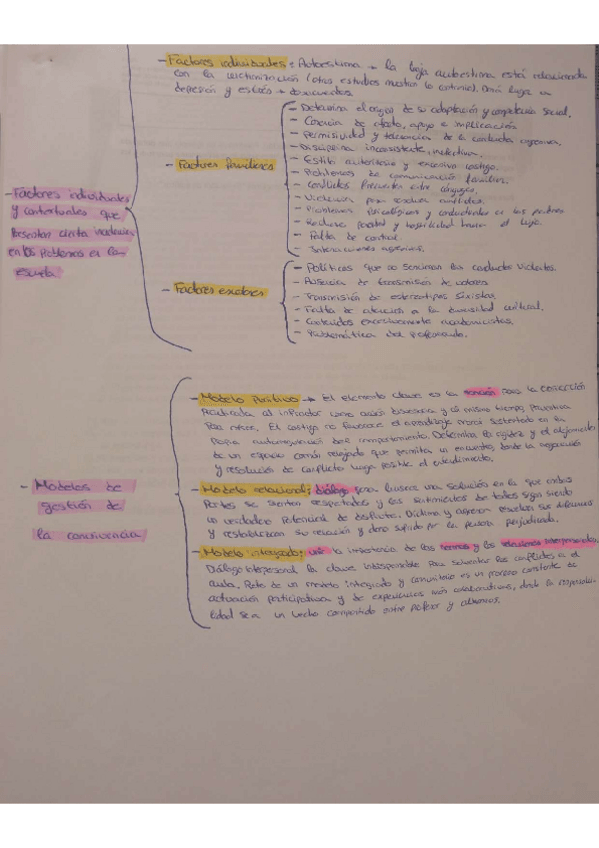 - Factores individuales e Autoestima → la baja autoestima está relacionada
con la victimización (otros estudios muestran lo contrario). Dará lugar a
depresión y estrés →
- Factores individuales
y contextuales que
presentan cierta incidencia
en los problemas en la
escuela
- Factores familiares
- Determina el origen de su adaptación y competencia social.
- Carencia de afecto, apoyo e implicación
- Permisividad y tolerancia de la conducta agresiva.
- Disciplina inconsistente, inefectiva.
- Estilo autoritario y excesivo castigo.
- Problemas de comunicación familiar.
- Conflictos frecuentes entre cónyuges.
- Violencia para resolver conflictos.
- Problemas psicológicos y conductuales en los padres
- Rechazo parental y hostilidad hacia el hijo.
- Falta de control.
- Interacciones agresivas.
- Factores escolares
- Políticas que no sancionan las conductas violentas.
- Ausencia de transmisión de valores
- Transmisión de estereotipos sexistas.
- Falta de atención a la diversidad cultural.
- Contenidos excesivamente academicistas.
- Problemática del profesorado.
- Modelos de
gestión de
la convivencia
- Modelo Punitivo → El elemento clave es la sanción para la corrección
Realizada al infractor como acción disuasoria y al mismo tiempo, preventiva
para otros. El castigo no favorece el aprendizaje moral sustentado en la
propia autorregulación del comportamiento. Determina la rigidez y el alejamiento
de un espacio común relajado que permita un encuentro, donde la negociación
y resolución de conflicto haga posible el entendimiento.
- Modelo relacional; diálogo para buscar una solución en la que ambas
partes se sientan respetadas y los sentimientos de todos sigan siendo
un verdadero potencial de desafecto. Víctima y agresor resuelven sus diferencias
y restablezcan su relación y daño sufrido por la persona perjudicada.
- Modelo integrado; une la importancia de las normas y las relaciones interpersonales
Diálogo interpersonal la clave indispensable para solventar los conflictos en el
aula. Reto de un modelo integrado y comunitario es un proceso constante de
actuación participativa y de experiencias más colaborativas, donde la responsabi-
lidad sea un hecho compartido entre profesor y alumnos.